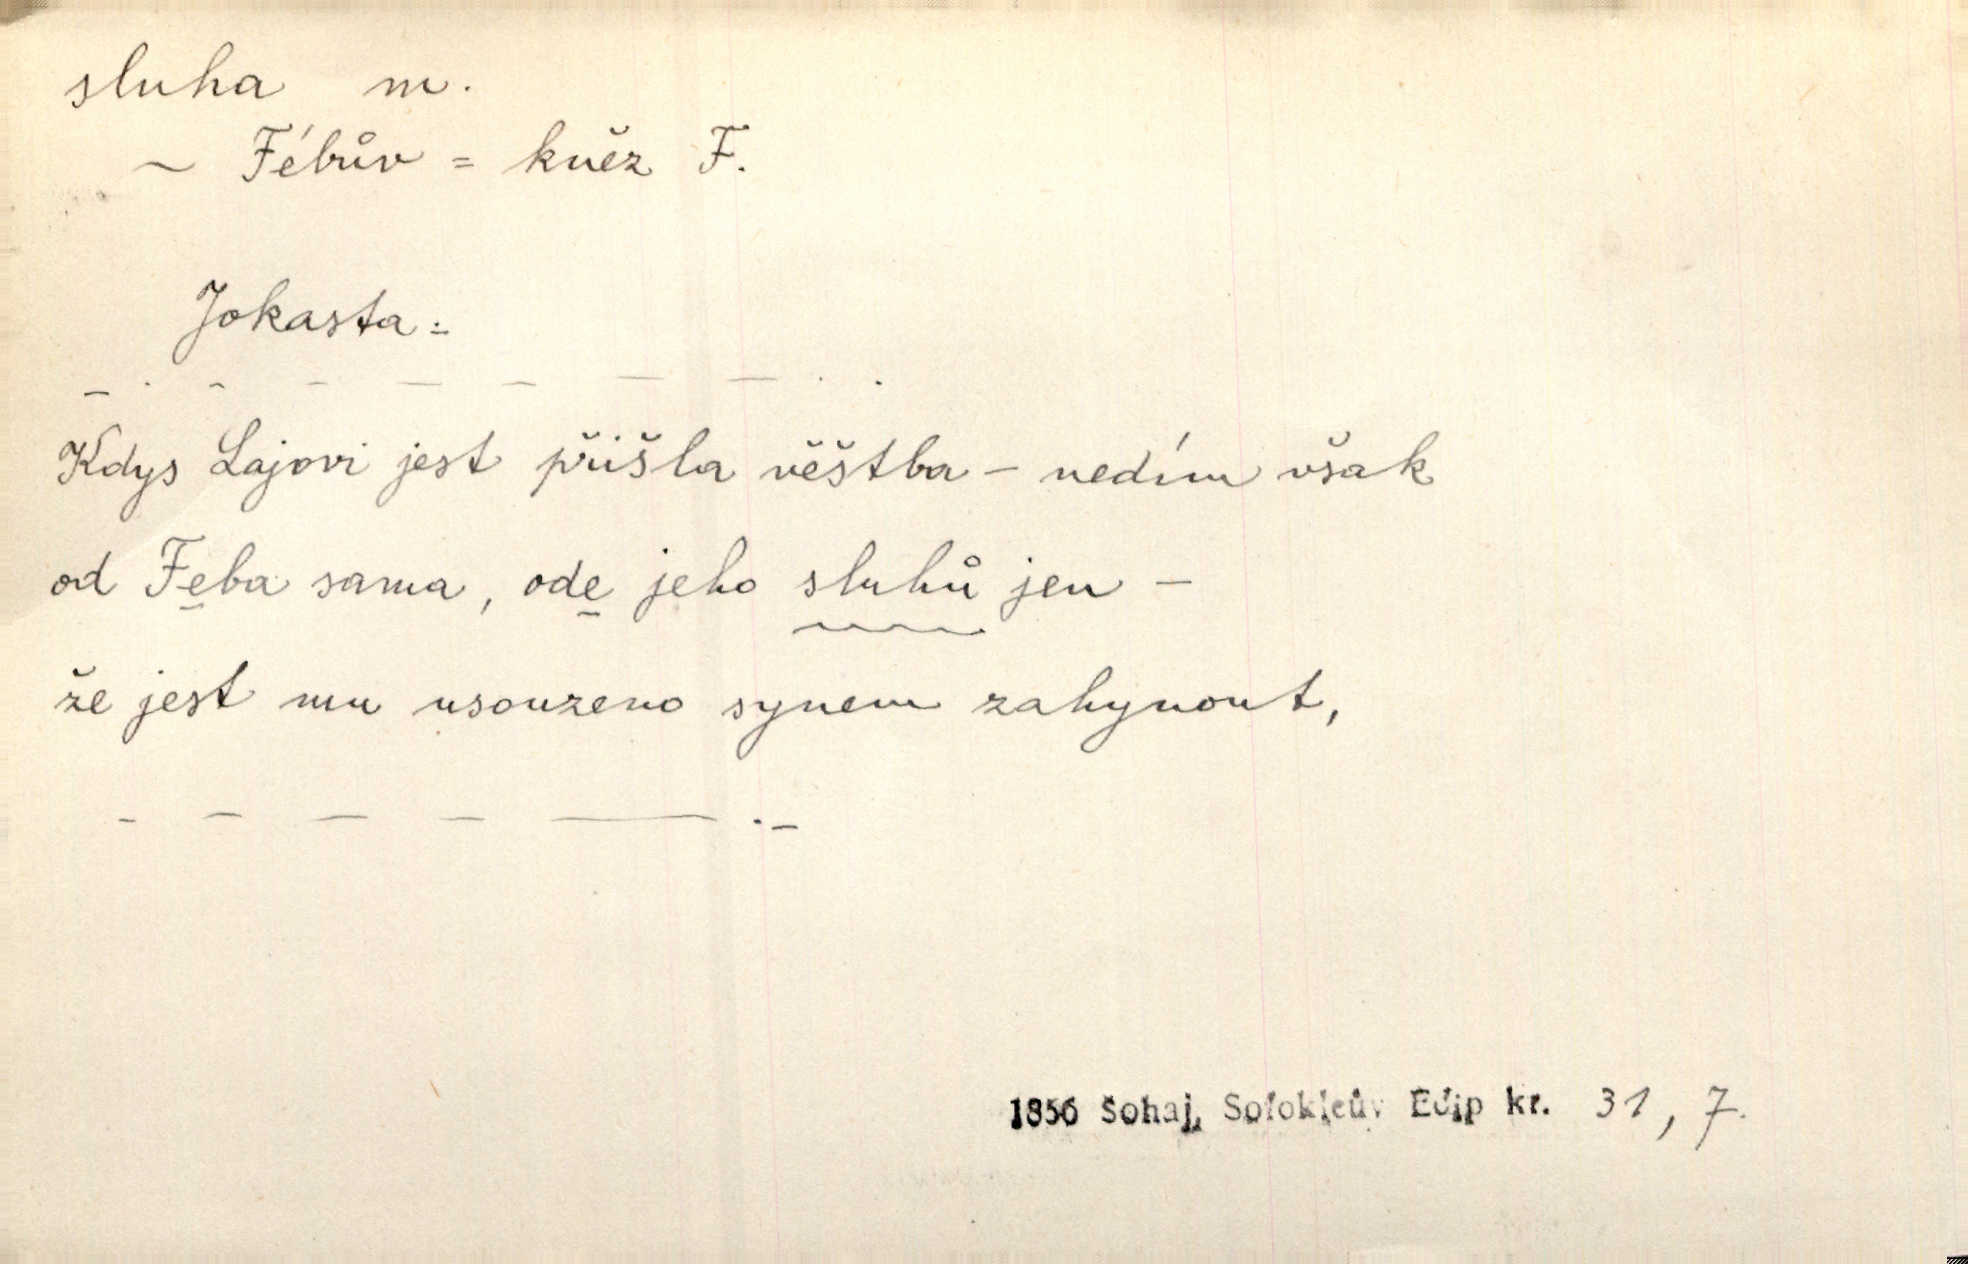 sluha m.
~ Fébův = kněz F.
Jokasta:
– . – – – – – – . .
Kdys Lajovi jest přišla věštba – nedím však
od Feba sama, ode jeho sluhů jen –
že jest mu usouzeno synem zahynout,
– – – – — . –
1856 Šohaj, Sofokleův Edip kr. 31, 7.